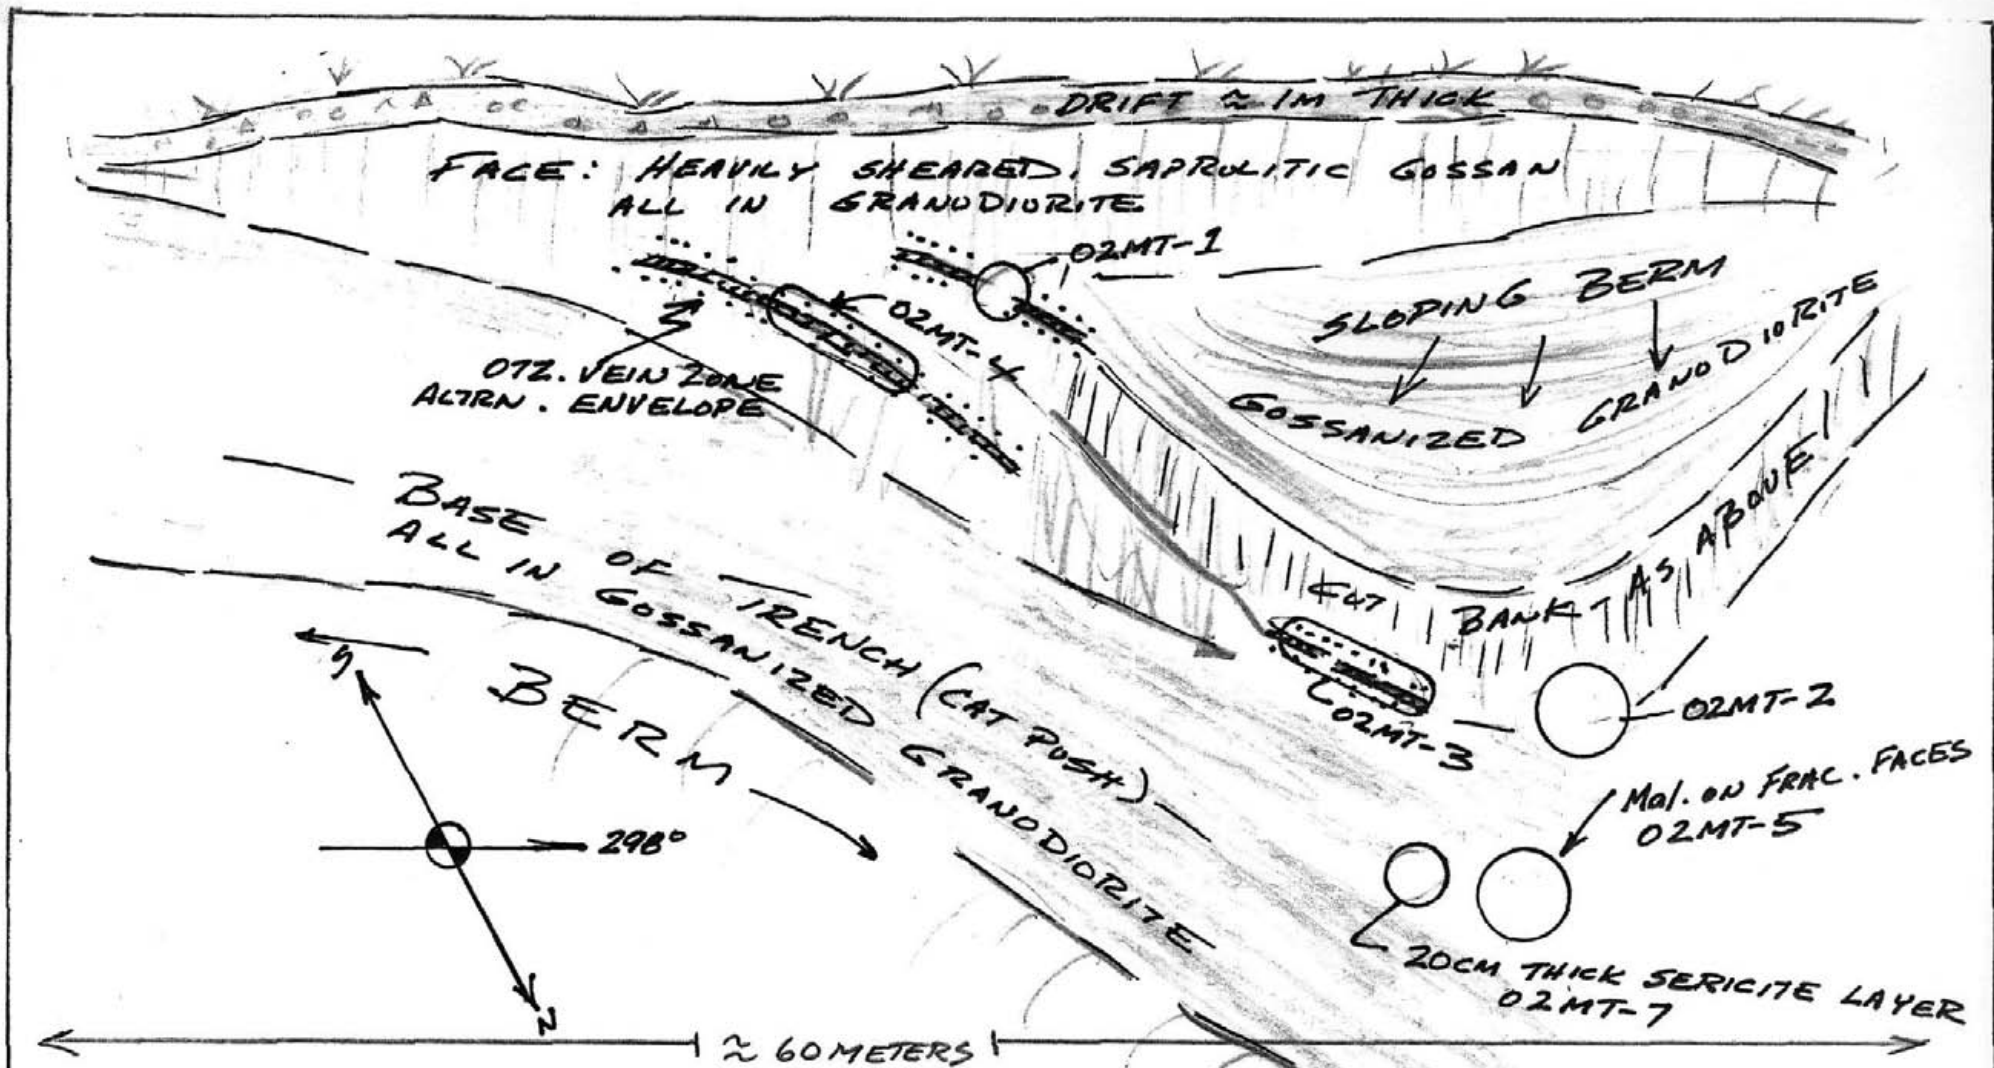 DRIFT ≈ 1M THICK
FACE: HEAVILY SHEARED, SAPROLITIC GOSSAN
ALL IN GRANODIORITE
02MT-1
02MT-4
QTZ. VEIN ZONE
ALTRN. ENVELOPE
SLOPING BERM
GOSSANIZED GRANODIORITE
CUT BANK - AS ABOVE
BASE OF TRENCH (CAT PUSH)
ALL IN GOSSANIZED GRANODIORITE
02MT-3
02MT-2
Mal. ON FRAC. FACES
02MT-5
20CM THICK SERICITE LAYER
02MT-7
BERM
S
298°
N
≈ 60 METERS